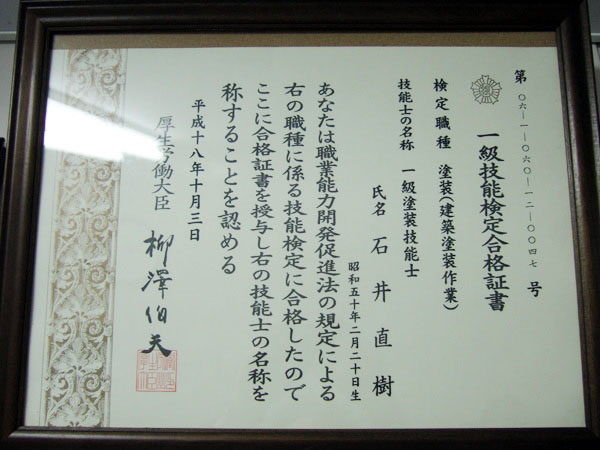 第〇六-一-〇六〇-一二-〇〇四七号
一級技能検定合格証書
検定職種 塗装(建築塗装作業)
技能士の名称 一級塗装技能士
氏名 石井直樹
昭和五十年二月二十日生
あなたは職業能力開発促進法の規定による
右の職種に係る技能検定に合格したので
ここに合格証書を授与し右の技能士の名称を
称することを認める
平成十八年十月三日
厚生労働大臣 柳澤伯夫